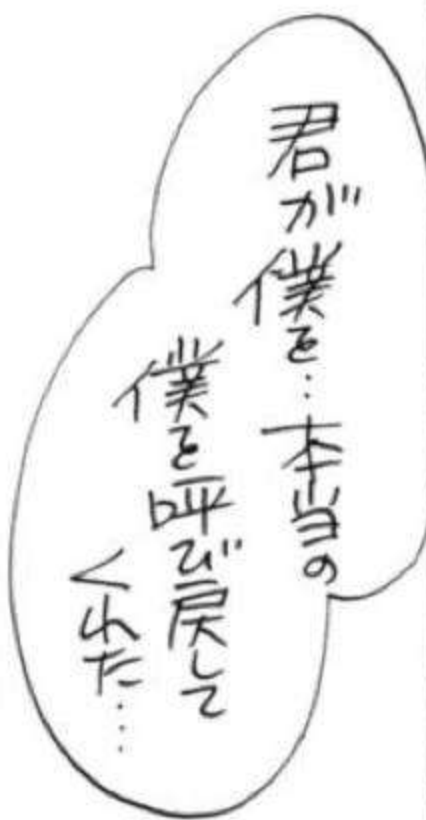 君が僕を…本当の
僕を呼び戻して
くれた……